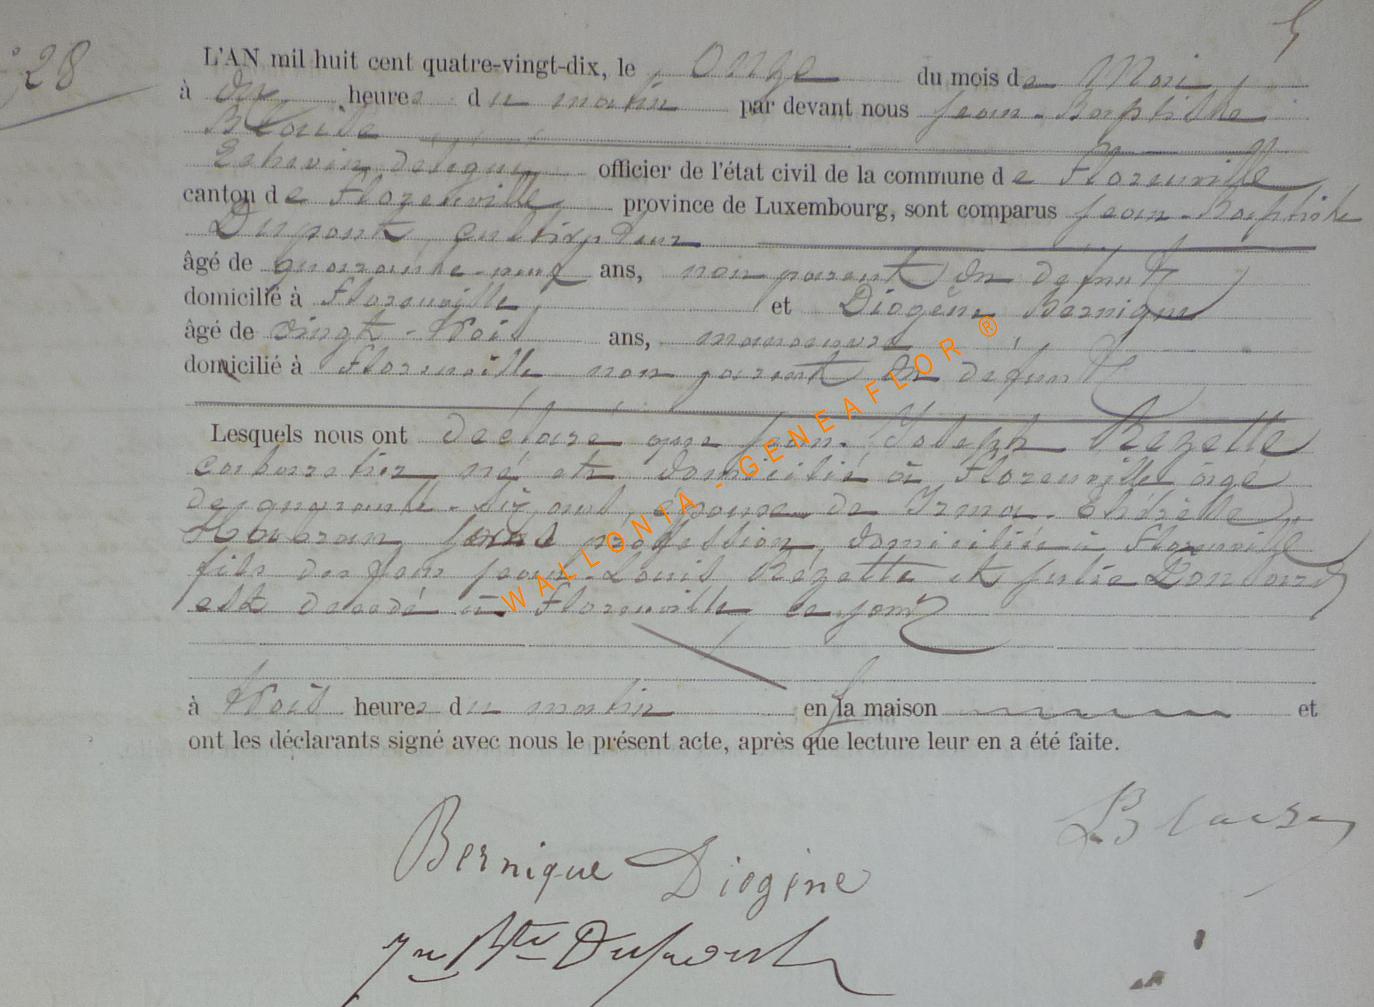 28
L'AN mil huit cent quatre-vingt-dix, le onze du mois de Mai,
à dix heures du matin par devant nous Jean-Baptiste
Blaise
Echevin délégué officier de l'état civil de la commune de Florenville
canton de Florenville province de Luxembourg, sont comparus Jean-Baptiste
Dupont, cultivateur
âgé de quarante-neuf ans, non parent du défunt
domicilié à Florenville et Diogène Bernique
âgé de vingt-trois ans, manoeuvre,
domicilié à Florenville non parent du défunt
Lesquels nous ont déclaré que Jean-Joseph Rezette
cabaretier, né et domicilié à Florenville âgé
de quarante-six ans, époux de Irma-Thérèse
sans profession, domiciliée à Florenville
fils de Jean-Louis Rezette et Julie
est décédé à Florenville ce jour
à trois heures du matin en la maison et
ont les déclarants signé avec nous le présent acte, après que lecture leur en a été faite.
Blaise
Bernique Diogène
Jn Bte Dupont
WALLONIA - GENEAFLOR ®